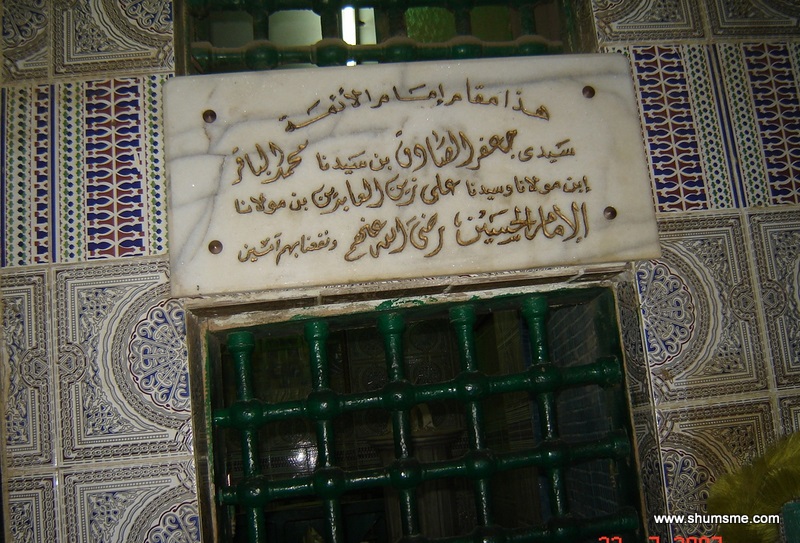 هذا مقام إمام الأئمة
سيدى جعفر الصادق بن سيدنا محمد الباقر
ابن مولانا وسيدنا على زين العابدين بن مولانا
الإمام الحسين رضى الله عنهم ونفعنا بهم آمين
www.shumsme.com